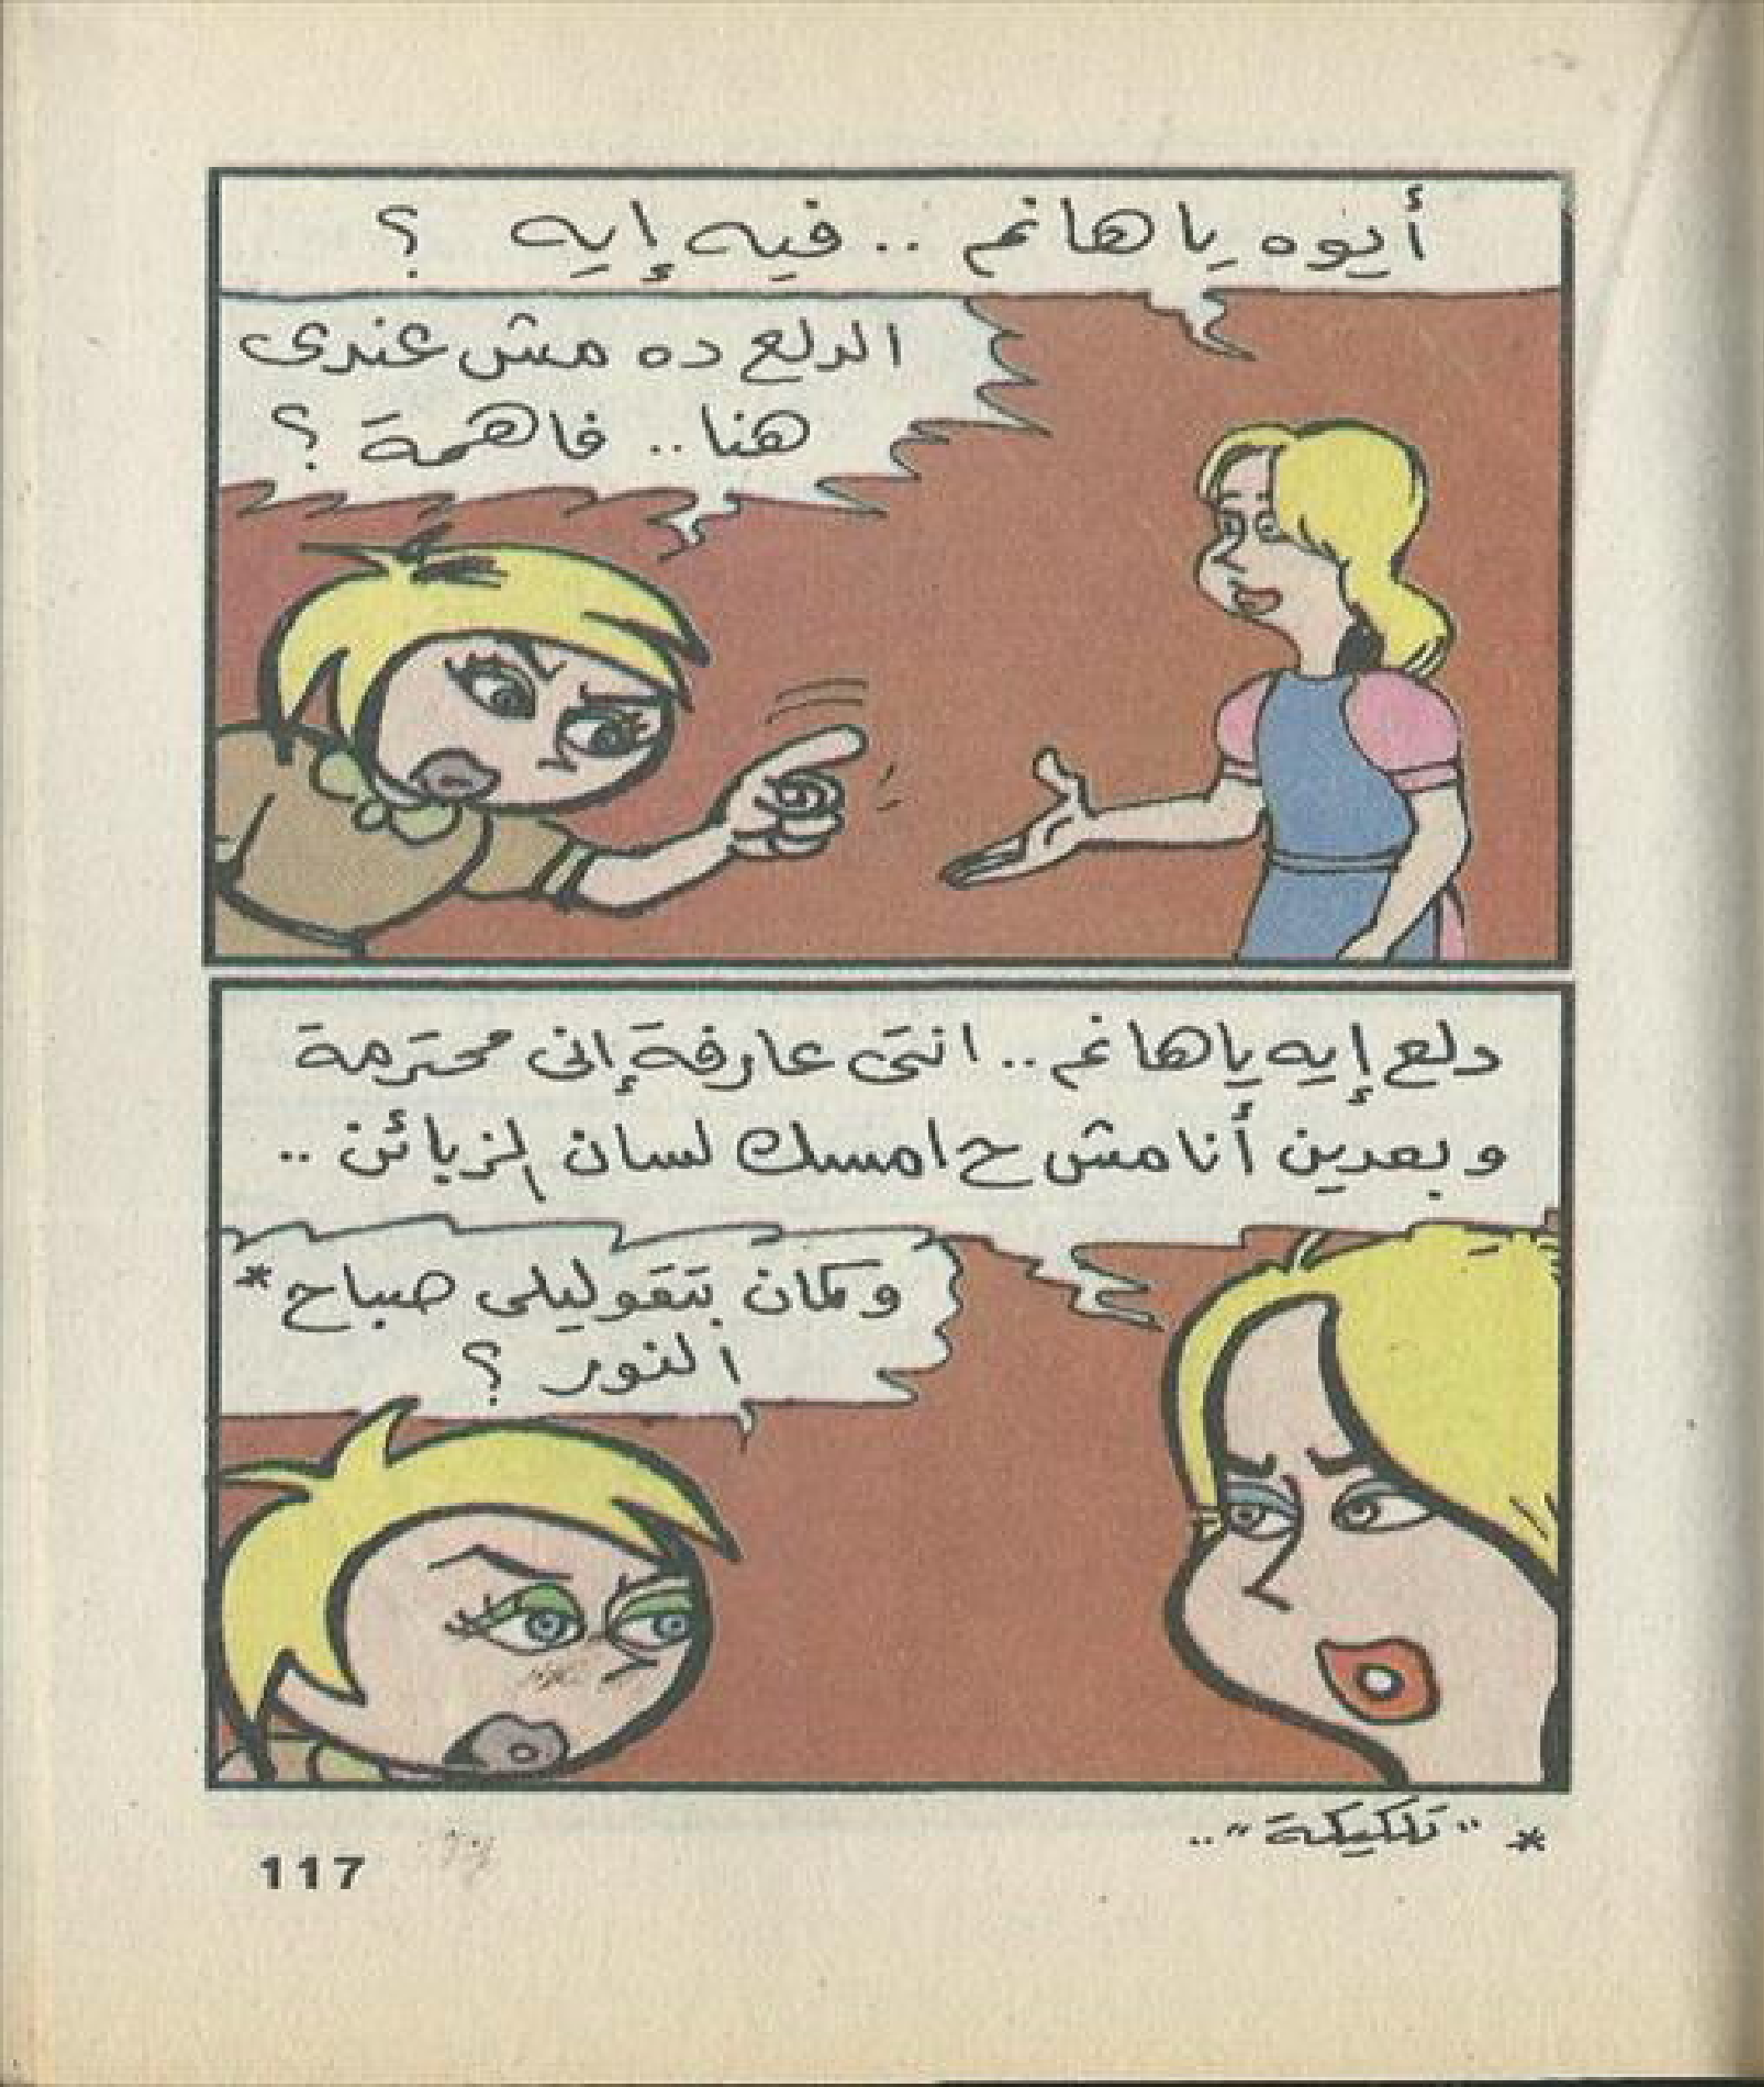 أيوه ياهانم .. فيه إيه ؟
الدلع ده مش عندى
هنا .. فاهمة ؟
دلع إيه ياهانم .. انتى عارفة إنى محترمة
وبعدين أنا مش ح امسك لسان الزبائن ..
وكمان بتقوليلى صباح*
النور ؟
* "تلكيكة" ..
117